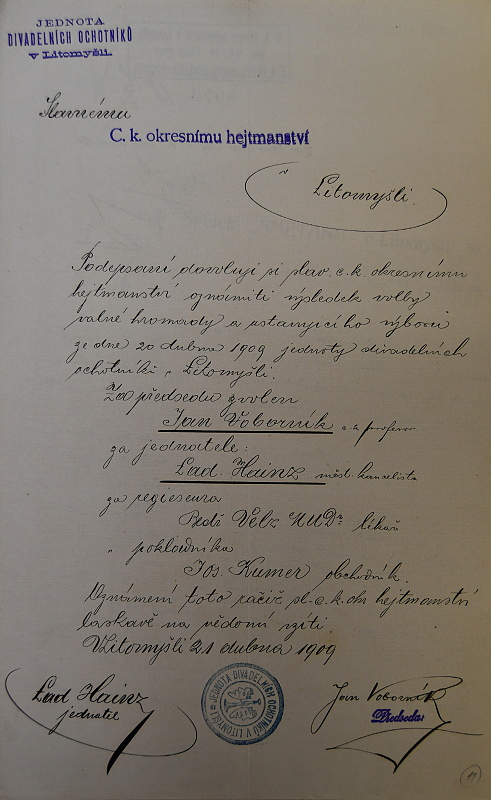 JEDNOTA
DIVADELNÍCH OCHOTNÍKŮ
v Litomyšli.
Slavnému
C. k. okresnímu hejtmanství
v
Litomyšli.
Podepsaní dovolují si slav. c. k. okresnímu
hejtmanství oznámiti výsledek volby
valné hromady a ustavujícího výboru
ze dne 20 dubna 1909 jednoty divadelních
ochotníků v Litomyšli.
Za předsedu zvolen
Jan Voborník c. k. profesor
za jednatele:
Lad. Hainz měst. kancelista
za regisseura
Bedř Velz MUDr lékař
" pokladníka
Jos. Kumer obchodník.
Oznámení toto račiž sl. c. k. okr hejtmanství
laskavě na vědomí vzíti
V Litomyšli 21 dubna 1909
Lad Hainz
jednatel
JEDNOTA DIVADELNÍCH OCHOTNÍKŮ V LITOMYŠLI
Jan Voborník
Předseda
11